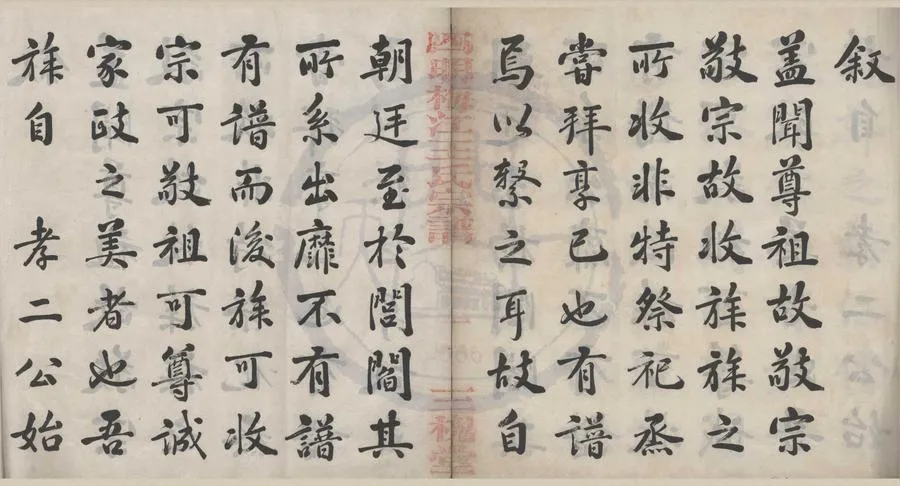 叙
盖聞尊祖故敬宗
敬宗故收族族之
所收非特祭祀烝
嘗拜享已也有譜
焉以繫之耳故自
四明梅江王氏宗譜 一 三槐堂
朝廷至於閭閻其
所系出靡不有譜
有譜而後族可收
宗可敬祖可尊誠
家政之美者也吾
族自 孝二公始